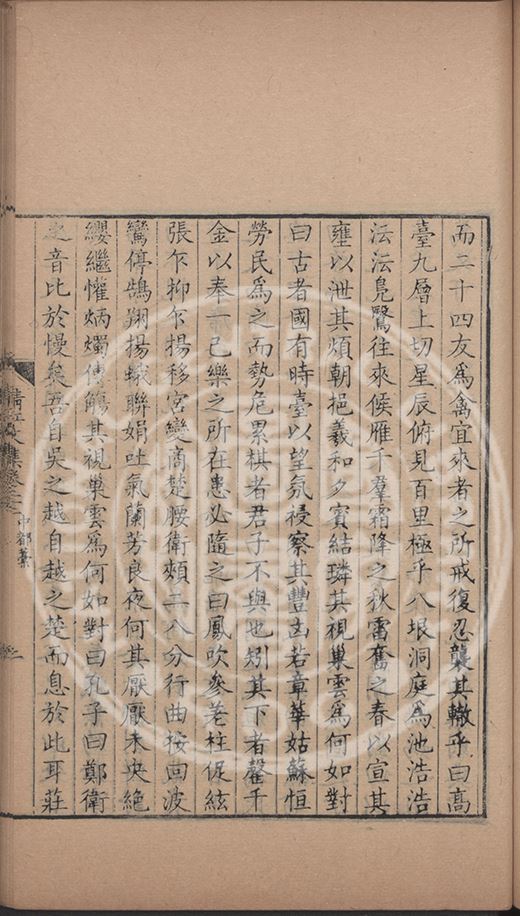 而二十四友為禽宜來者之所戒復忍襲其轍乎曰髙
臺九層上切星辰俯見百里極乎八垠洞庭為池浩浩
沄沄鳬鷖往來候雁千羣霜降之秋雷奮之春以宣其
壅以泄其煩朝挹羲和夕賓結璘其視巢雲爲何如對
曰古者國有時臺以望氛祲察其豐凶若章華姑蘇恒
勞民爲之而勢危累棋者君子不與也矧其下者罄千
金以奉一己樂之所在患必隨之曰鳳吹參差柱促絃
張乍抑乍揚移宮變商楚腰衛頰二八分行曲按回波
鸞停鵠翔揚蛾聯娟吐氣蘭芳良夜何其厭厭未央絶
纓繼懽炳燭傳觴其視巢雲爲何如對曰孔子曰鄭衛
之音比於慢矣吾自吳之越自越之楚而息於此耳莊
清江文集卷之
中都藁